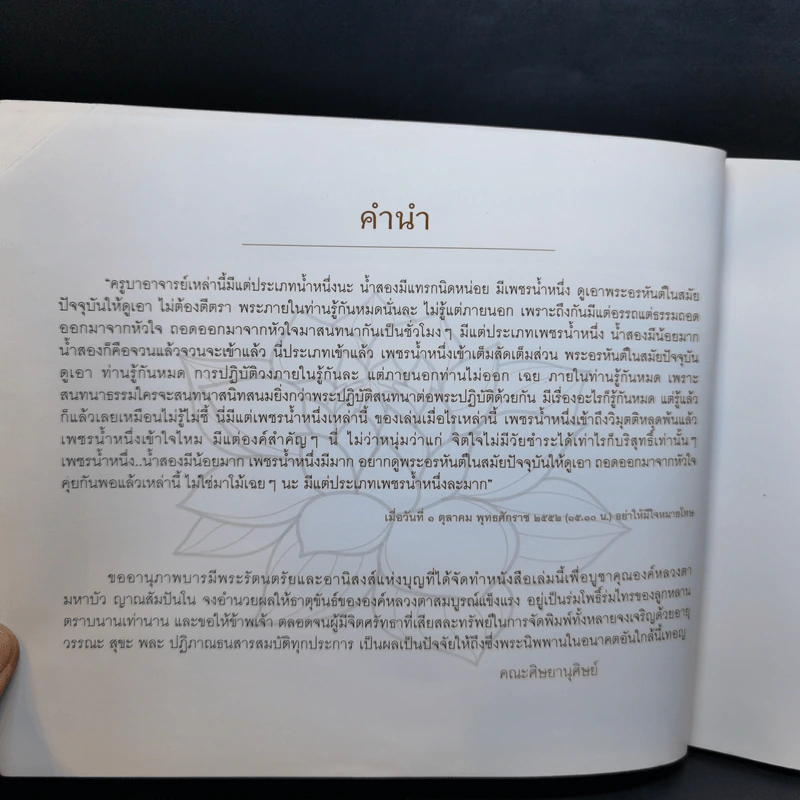 คำนำ
"ครูบาอาจารย์เหล่านี้มีแต่ประเภทน้ำหนึ่งนะ น้ำสองมีแทรกนิดหน่อย มีเพชรน้ำหนึ่ง ดูเอาพระอรหันต์ในสมัย
ปัจจุบันให้ดูเอา ไม่ต้องตีตรา พระภายในท่านรู้กันหมดนั่นละ ไม่รู้แต่ภายนอก เพราะถึงกันมีแต่อรรถแต่ธรรมถอด
ออกมาจากหัวใจ ถอดออกมาจากหัวใจมาสนทนากันเป็นชั่วโมงๆ มีแต่ประเภทเพชรน้ำหนึ่ง น้ำสองมีน้อยมาก
น้ำสองก็คือจวนแล้วจวนจะเข้าแล้ว นี่ประเภทเข้าแล้ว เพชรน้ำหนึ่งเข้าเต็มสัดเต็มส่วน พระอรหันต์ในสมัยปัจจุบัน
ดูเอา ท่านรู้กันหมด การปฏิบัติวงภายในรู้กันละ แต่ภายนอกท่านไม่ออก เฉย ภายในท่านรู้กันหมด เพราะ
สนทนาธรรมใครจะสนทนาสนิทสนมยิ่งกว่าพระปฏิบัติสนทนาต่อพระปฏิบัติด้วยกัน มีเรื่องอะไรก็รู้กันหมด แต่รู้แล้ว
ก็แล้วเลยเหมือนไม่รู้ไม่ชี้ นี่มีแต่เพชรน้ำหนึ่งเหล่านี้ ของเล่นเมื่อไรเหล่านี้ เพชรน้ำหนึ่งเข้าถึงวิมุตติหลุดพ้นแล้ว
เพชรน้ำหนึ่งเข้าใจไหม มีแต่องค์สำคัญๆ นี่ ไม่ว่าหนุ่มว่าแก่ จิตใจไม่มีวัยชำระได้เท่าไรก็บริสุทธิ์เท่านั้นๆ
เพชรน้ำหนึ่ง..น้ำสองมีน้อยมาก เพชรน้ำหนึ่งมีมาก อยากดูพระอรหันต์ในสมัยปัจจุบันให้ดูเอา ถอดออกมาจากหัวใจ
คุยกันพอแล้วเหล่านี้ ไม่ใช่มาโม้เฉยๆ นะ มีแต่ประเภทเพชรน้ำหนึ่งละมาก"
เมื่อวันที่ ๑ ตุลาคม พุทธศักราช ๒๕๕๒ (๑๕.๑๐ น.) อย่าให้มีใจหมายโทษ
ขออานุภาพบารมีพระรัตนตรัยและอานิสงส์แห่งบุญที่ได้จัดทำหนังสือเล่มนี้เพื่อบูชาคุณองค์หลวงตา
มหาบัว ญาณสัมปันโน จงอำนวยผลให้ธาตุขันธ์ขององค์หลวงตาสมบูรณ์แข็งแรง อยู่เป็นร่มโพธิ์ร่มไทรของลูกหลาน
ตราบนานเท่านาน และขอให้ข้าพเจ้า ตลอดจนผู้มีจิตศรัทธาที่เสียสละทรัพย์ในการจัดพิมพ์ทั้งหลายจงเจริญด้วยอายุ
วรรณะ สุขะ พละ ปฏิภาณธนสารสมบัติทุกประการ เป็นผลเป็นปัจจัยให้ถึงซึ่งพระนิพพานในอนาคตอันใกล้นี้เทอญ
คณะศิษยานุศิษย์